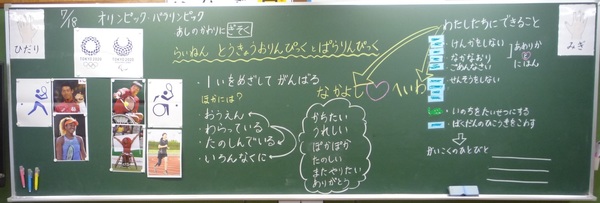 7/18
オリンピック・パラリンピック
あしのかわりにぎそく
ひだり
TOKYO 2020
TOKYO 2020
らいねん とうきょうおりんぴっくとぱらりんぴっく
・1いをめざして がんばる
ほかには?
・おうえん
・わらっている
・たのしんでいる
・いろんなくに
かちたい
うれしい
ぽかぽか
たのしい
またやりたい
ありがとう
なかよし♡へいわ
わたしたちにできること
みぎ
けんかをしない
なかなおり
ごめんなさい
にほん
せんそうをしない
・いのちをたいせつにする
・ばくだんのひこうきをこわす
がいこくのあとびと